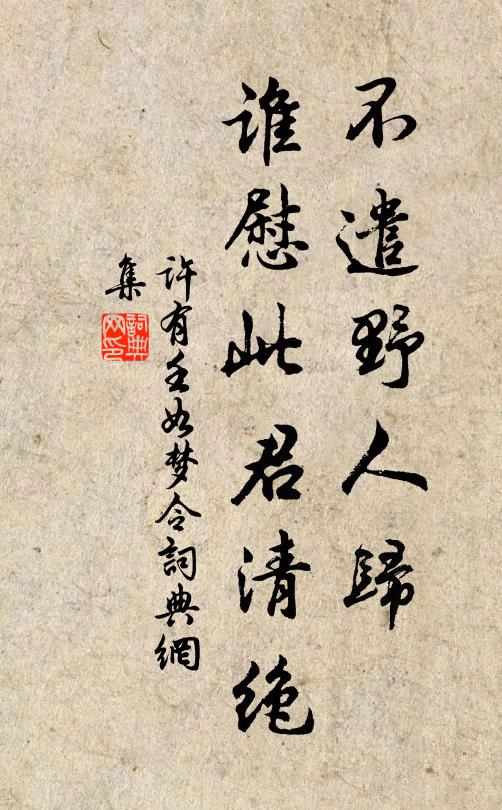 不遣野人歸
誰慰此君清絶
許有壬如梦令詞典網
集
詞典
网印